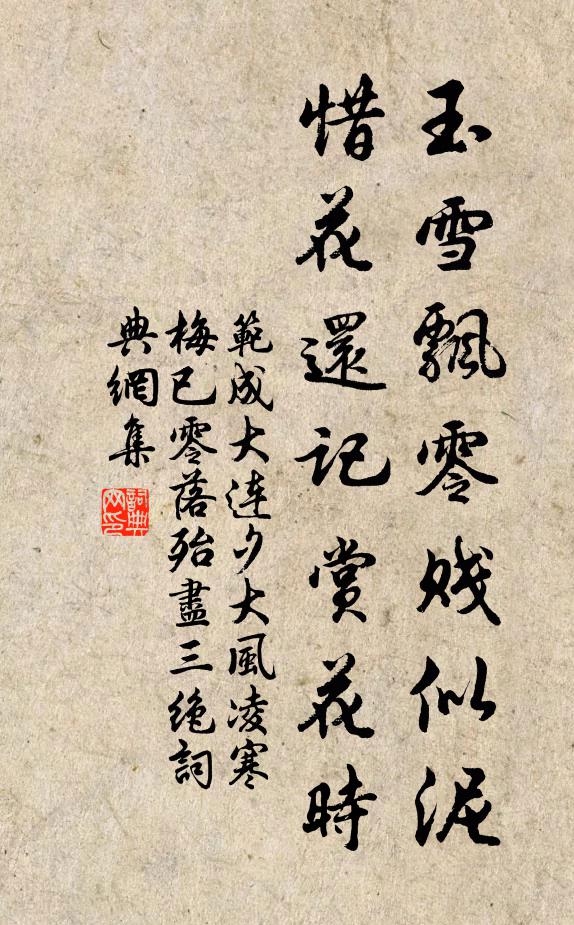 玉雪飄零賤似泥
惜花還記賞花時
範成大連夕大風凌寒
梅已零落殆盡三絶詞
典網集
詞典網印